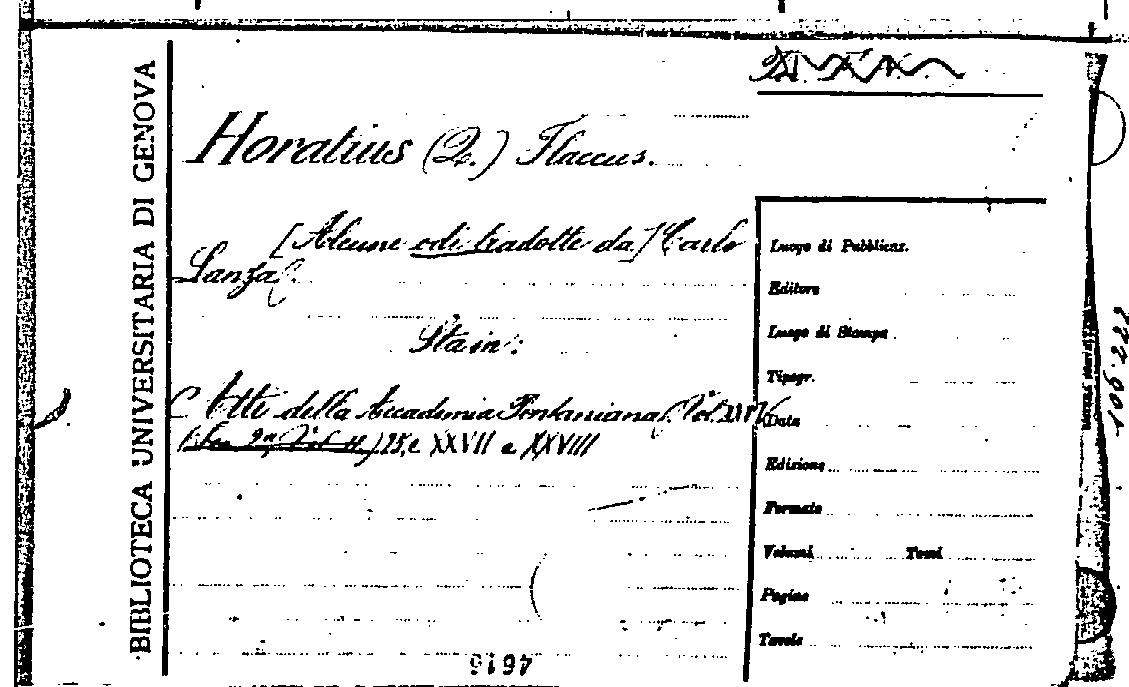 BIBLIOTECA UNIVERSITARIA DI GENOVA
Horatius (Q.) Flaccus.
[Alcune odi tradotte da] Carlo
Lanza.
Sta in:
Atti della Accademia Pontaniana, Vol.
e XXVII e XXVIII
Luogo di Pubblicaz.
Editore
Luogo di Stampa
Tipogr.
Data
Edizione
Formato
Volumi Tomi
Pagine
Tavole
106.222